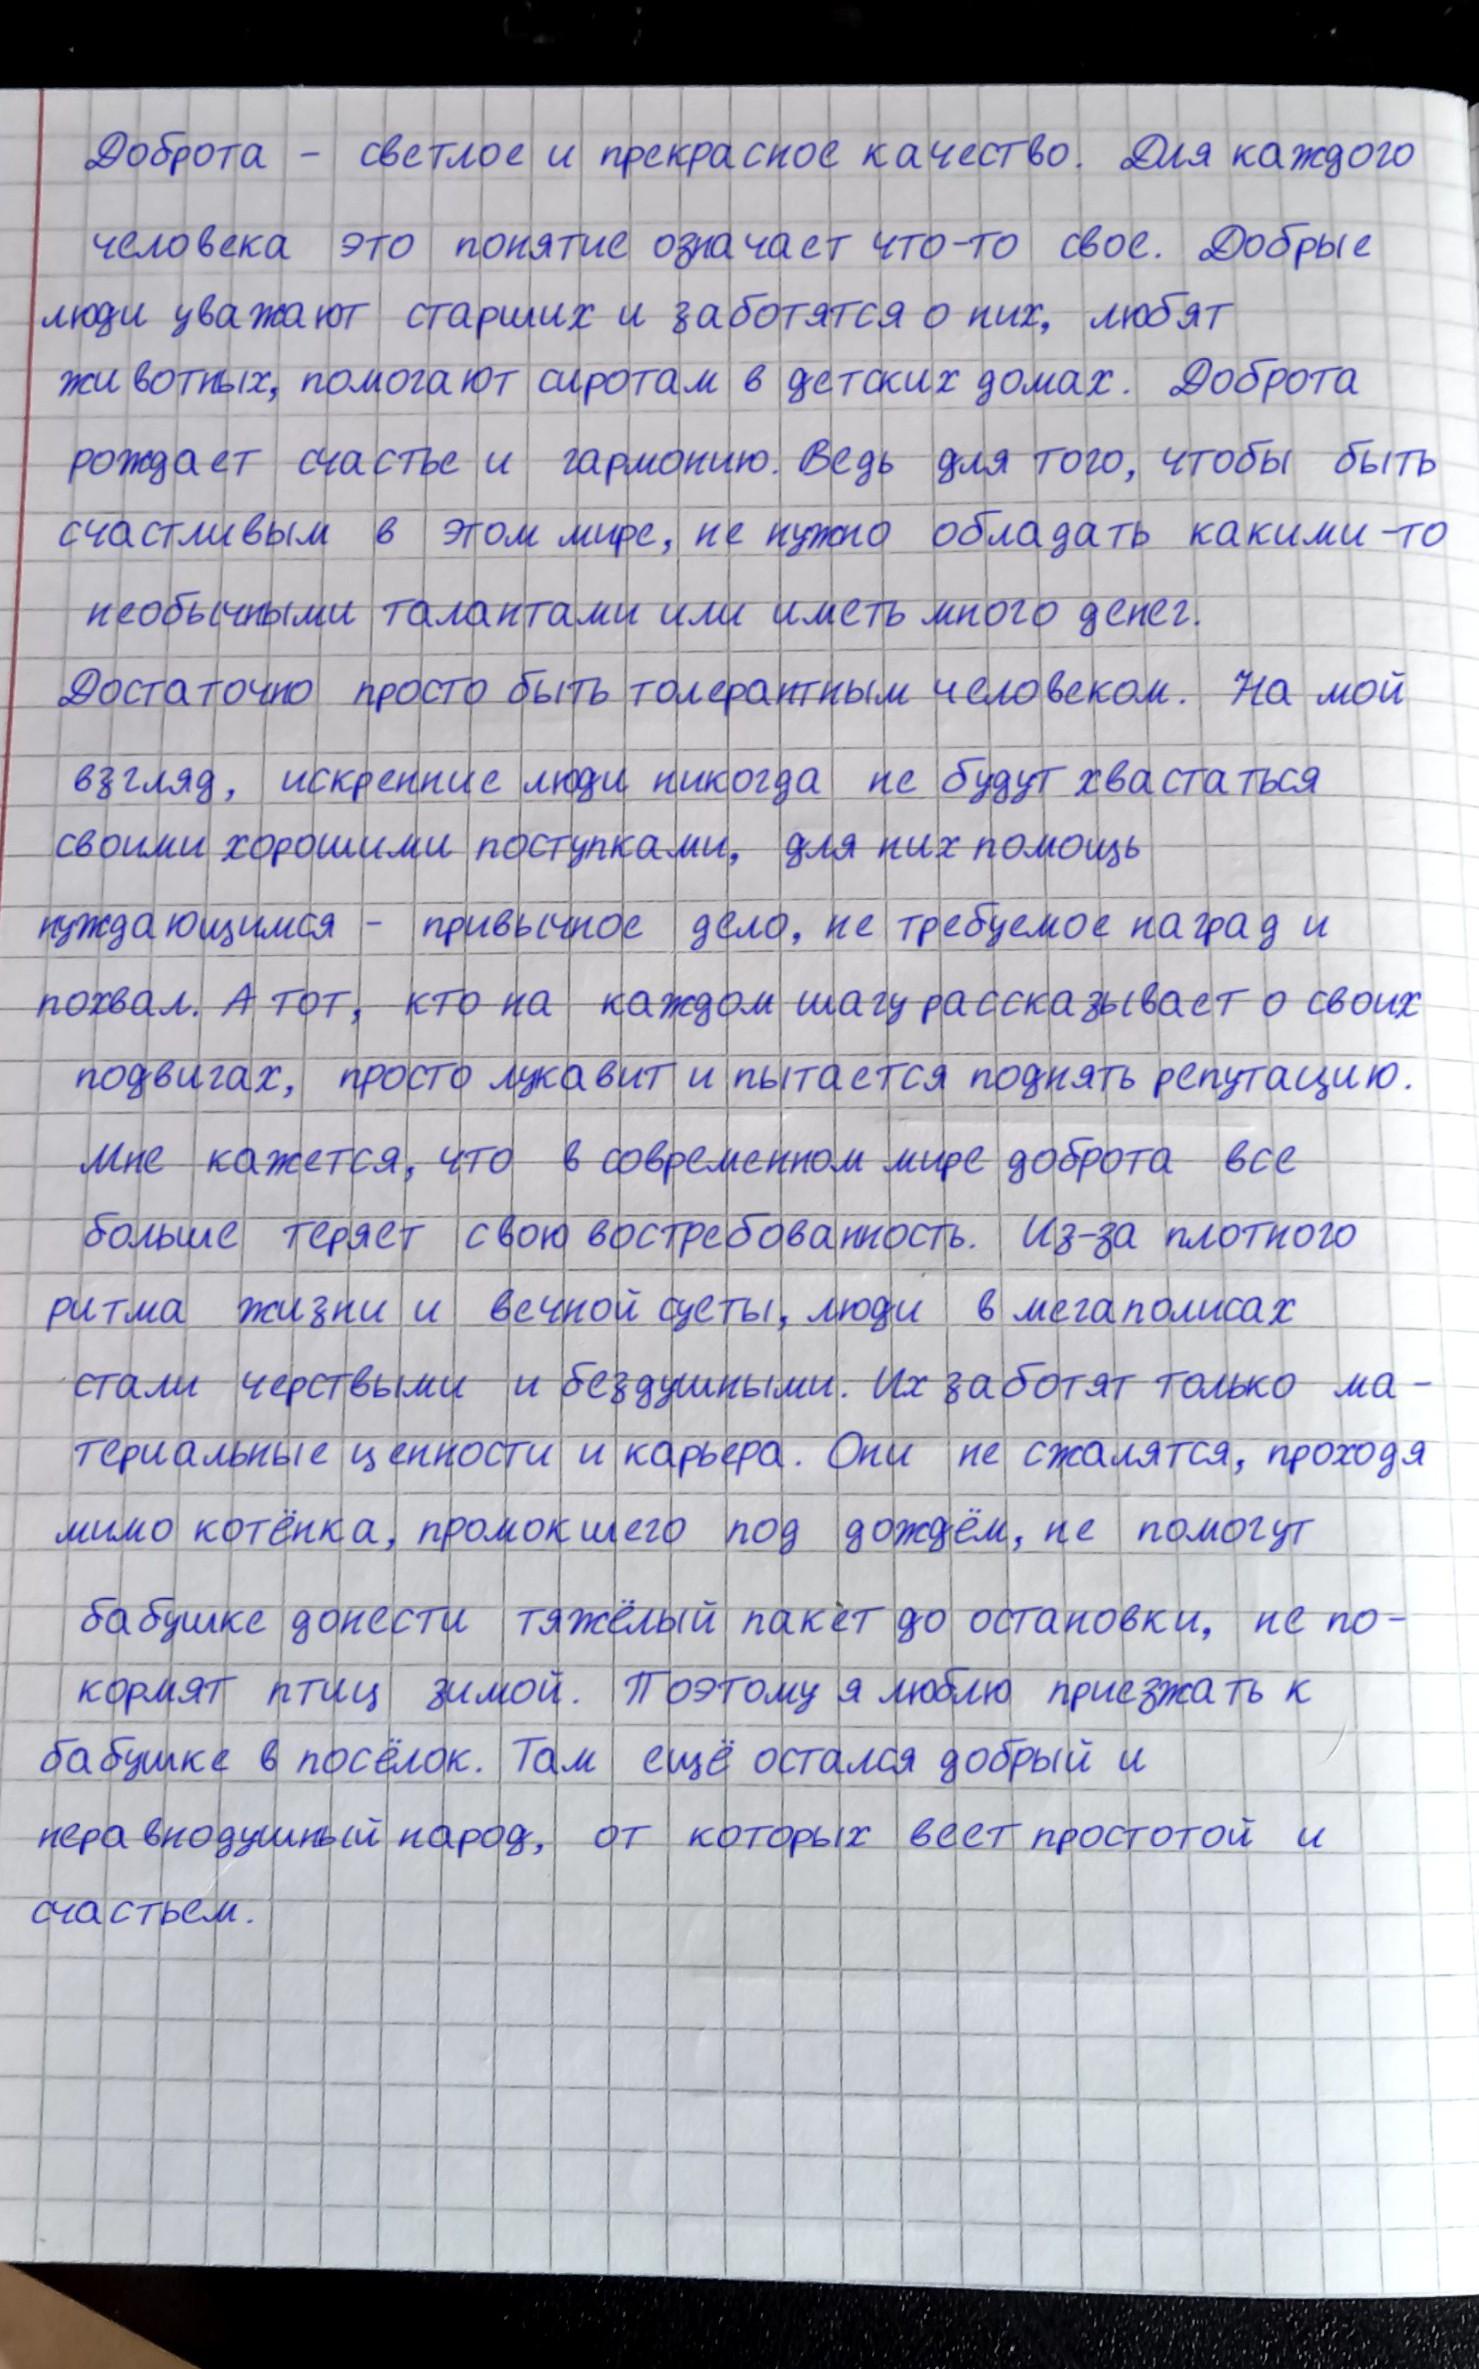 Доброта - светлое и прекрасное качество. Для каждого
человека это понятие означает что-то свое. Добрые
люди уважают старших и заботятся о них, любят
животных, помогают сиротам в детских домах. Доброта
рождает счастье и гармонию. Ведь для того, чтобы быть
счастливым в этом мире, не нужно обладать какими-то
необычными талантами или иметь много денег.
Достаточно просто быть толерантным человеком. На мой
взгляд, искренние люди никогда не будут хвастаться
своими хорошими поступками, для них помощь
нуждающимся - привычное дело, не требуемое наград и
похвал. А тот, кто на каждом шагу рассказывает о своих
подвигах, просто лукавит и пытается поднять репутацию.
Мне кажется, что в современном мире доброта все
больше теряет свою востребованность. Из-за плотного
ритма жизни и вечной суеты, люди в мегаполисах
стали черствыми и бездушными. Их заботят только ма-
териальные ценности и карьера. Они не сжалятся, проходя
мимо котёнка, промокшего под дождём, не помогут
бабушке донести тяжёлый пакет до остановки, не по-
кормят птиц зимой. Поэтому я люблю приезжать к
бабушке в посёлок. Там ещё остался добрый и
неравнодушный народ, от которых веет простотой и
счастьем.